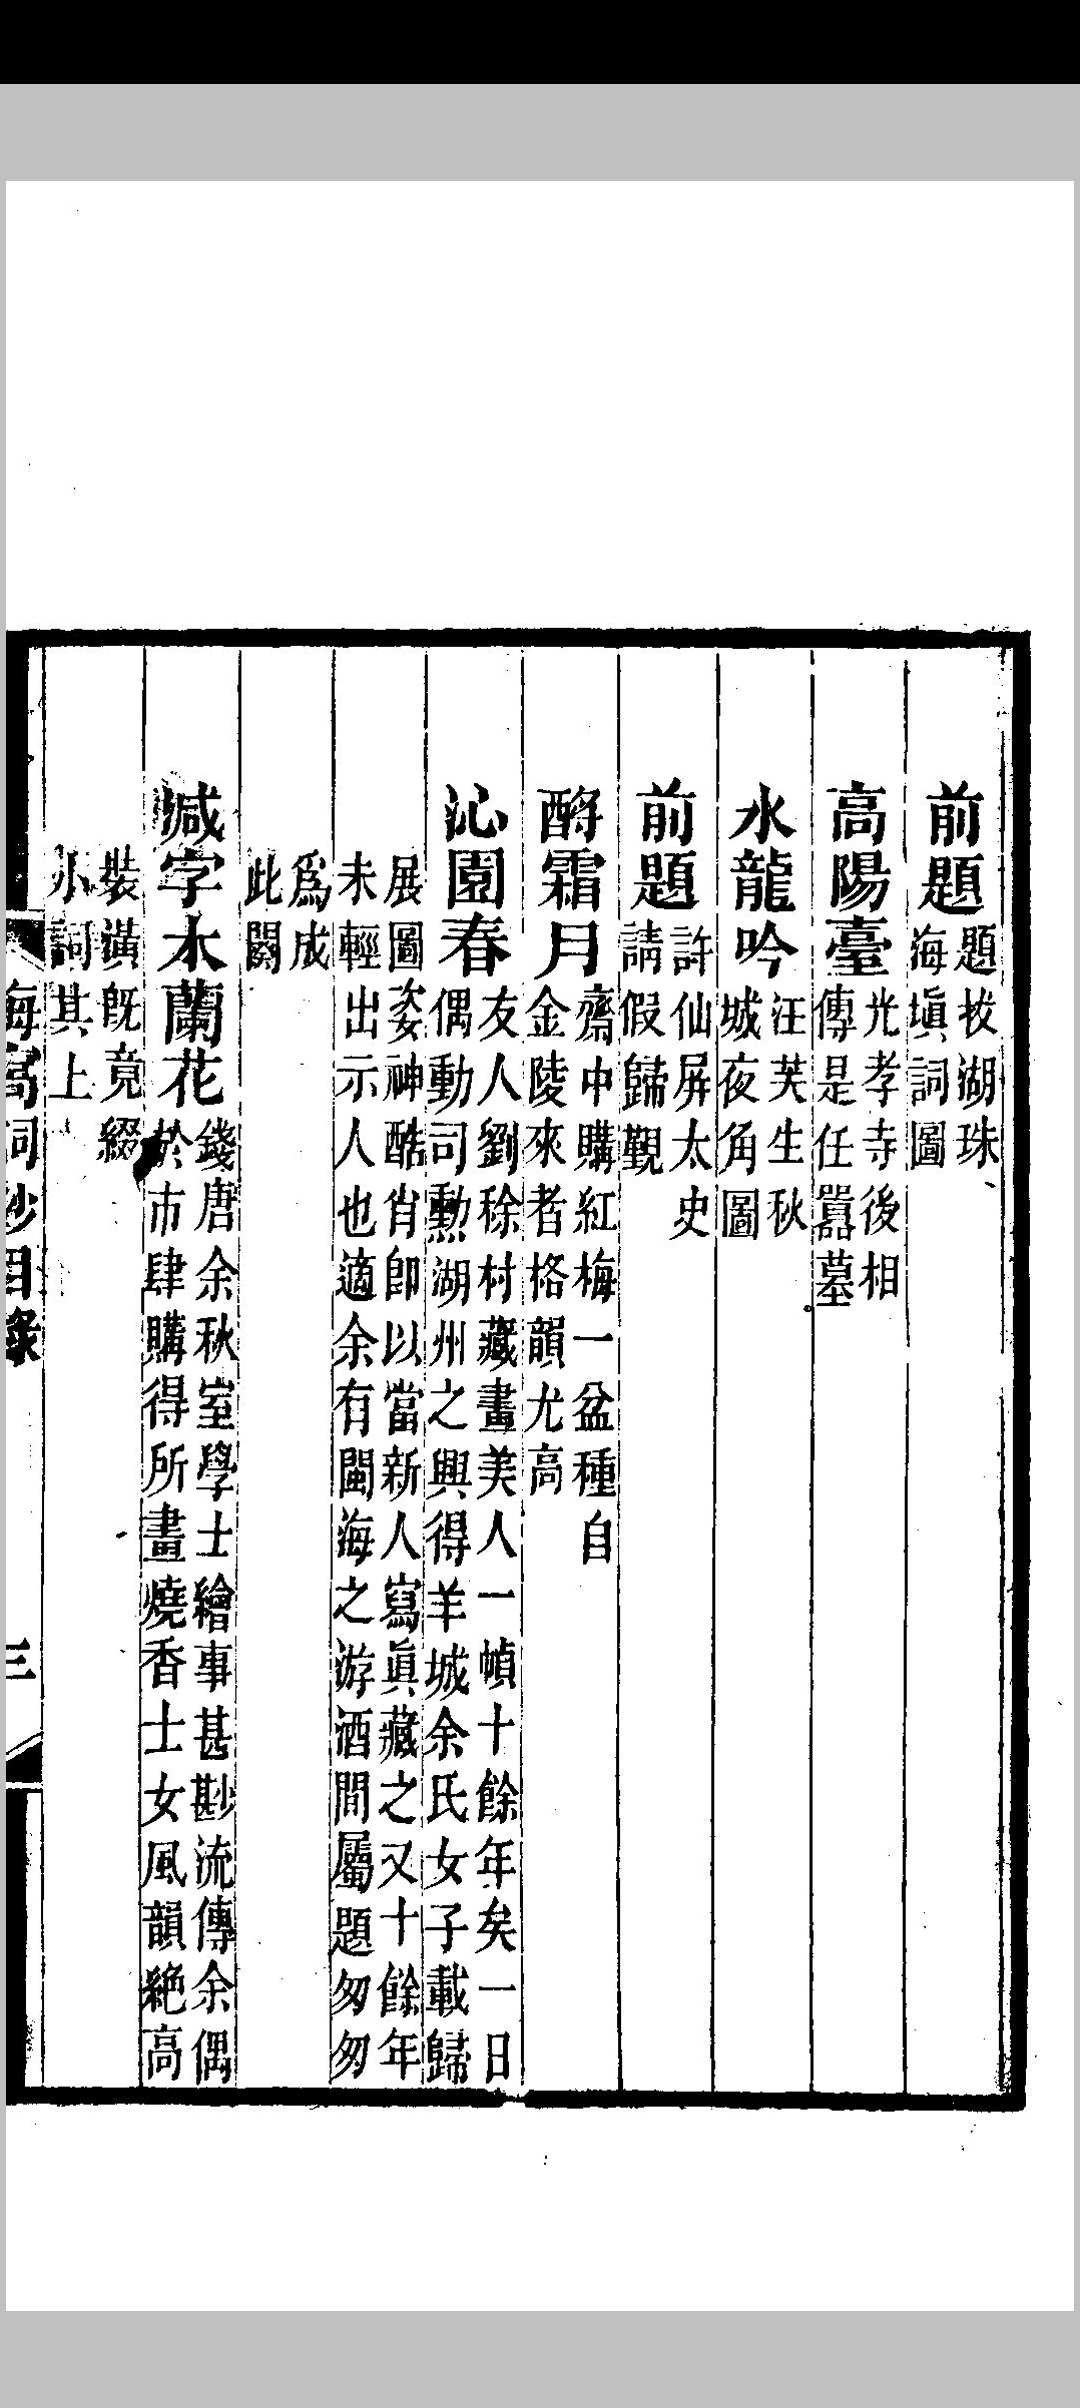 前題
題湖珠
海塡詞圖
高陽臺
光孝寺後相
傳是任囂墓
水龍吟
汪芙生秋
城夜角圖
前題
許仙屏太史
請假歸覲
酹霜月
齋中購紅梅一盆種自
金陵來者格韻尤高
沁園春
友人劉稌村藏畫美人一幀十餘年矣一日
偶動司勳湖州之興得羊城余氏女子載歸
展圖姿神酷肖卽以當新人寫眞藏之又十餘年
未輕出示人也適余有閩海之游酒間屬題匆匆
爲成
此闋
減字木蘭花
錢唐余秋室學士繪事甚尠流傳余偶
於市肆購得所畫燒香士女風韻絶高
裝潢旣竟綴
小詞其上
海窩詞鈔目錄
三